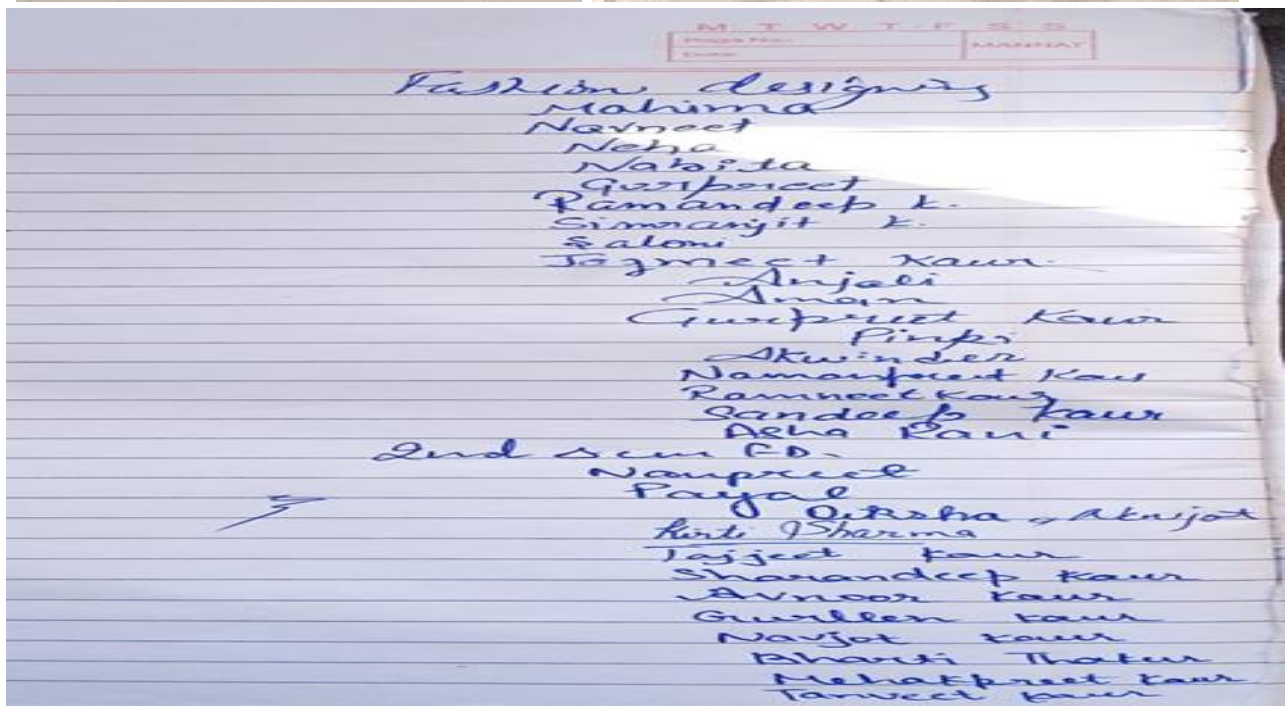 M T W T F S S
Page No.:
Date: MANNAT
Fashion designing
Mahima
Navneet
Neha
Nabita
Gurpreet
Ramandeep K.
Simranjit K.
Saloni
Jazmeet Kaur.
Anjali
Aman
Gurpreet Kaur
Pinki
Akwinder
Namanpreet Kaur
Ramneet Kaur
Sandeep Kaur
Asha Rani
2nd sem F.D.
Navpreet
Payal
Diksha
Kirti Sharma
Tajjeet Kaur
Sharandeep Kaur
Avnoor Kaur
Gurlleen Kaur
Navjot Kaur
Bharti Thakur
Mehakpreet Kaur
Tanveet Kaur